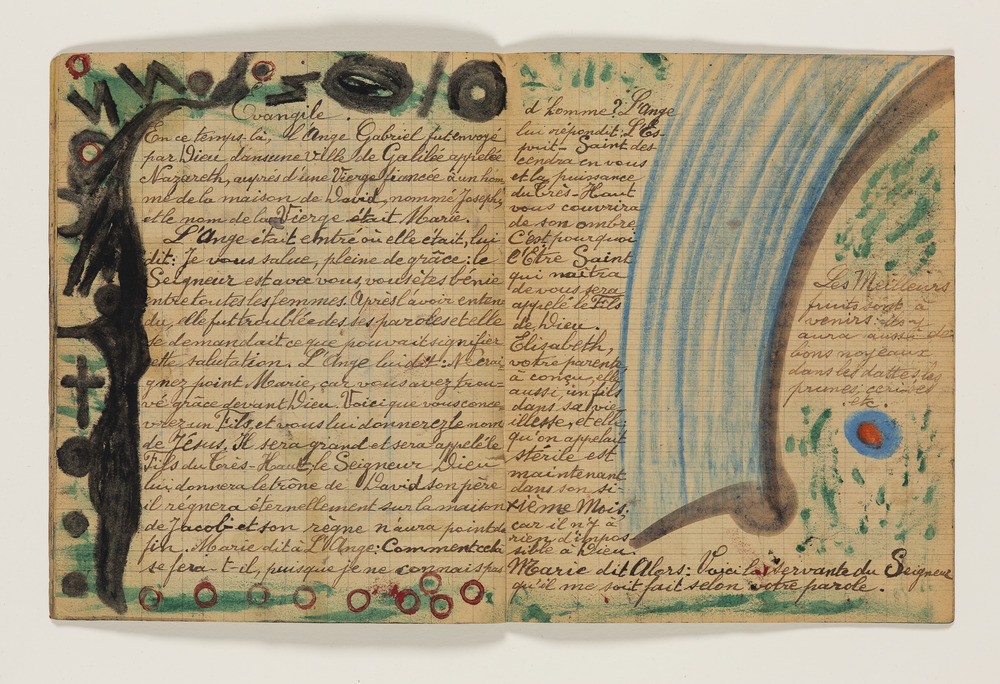 Evangile.
En ce temps-là, l'Ange Gabriel fut envoyé
par Dieu, dans une ville de Galilée appelée
Nazareth, auprès d'une Vierge fiancée à un hom
me de la maison de David, nommé Joseph,
et le nom de la Vierge était Marie.
L'Ange était entré où elle était, lui
dit: Je vous salue, pleine de grâce: le
Seigneur est avec vous, vous êtes bénie
entre toutes les femmes. Après l'avoir enten
du, elle fut troublée des ses paroles et elle
se demandait ce que pouvait signifier
cette salutation. L'Ange lui dit: Ne crai
gnez point Marie, car vous avez trou-
vé grâce devant Dieu. Voici que vous conce
vrez un Fils, et vous lui donnerez le nom
de Jésus. Il sera grand et sera appelé le
Fils du Très-Haut, le Seigneur Dieu
lui donnera le trône de David son père
il règnera éternellement sur la maison
de Jacob et son règne n'aura point de
fin. Marie dit à L'Ange: Comment cela
se fera-t-il, puisque je ne connais pas
d'homme? L'ange
lui répondit: L'Es-
prit-Saint des
cendra en vous
et la puissance
du Très-Haut
vous couvrira
de son ombre.
C'est pourquoi
l'Être Saint
qui naîtra
de vous sera
appelé le Fils
de Dieu.
Elisabeth,
votre parente
a conçu, elle
aussi, un fils
dans sa vie
illesse, et elle
qu'on appelait
stérile est
maintenant
dans son si-
xième Mois,
car il n'y à
rien d'impos
sible à Dieu.
Marie dit Alors: Voici la servante du Seigneur
qu'il me soit fait selon votre parole.
Les Meilleurs
fruits sont à
venirs. Les y
aura aussi des
bons noyeaux
dans les dattes les
prunes, cerises
etc.